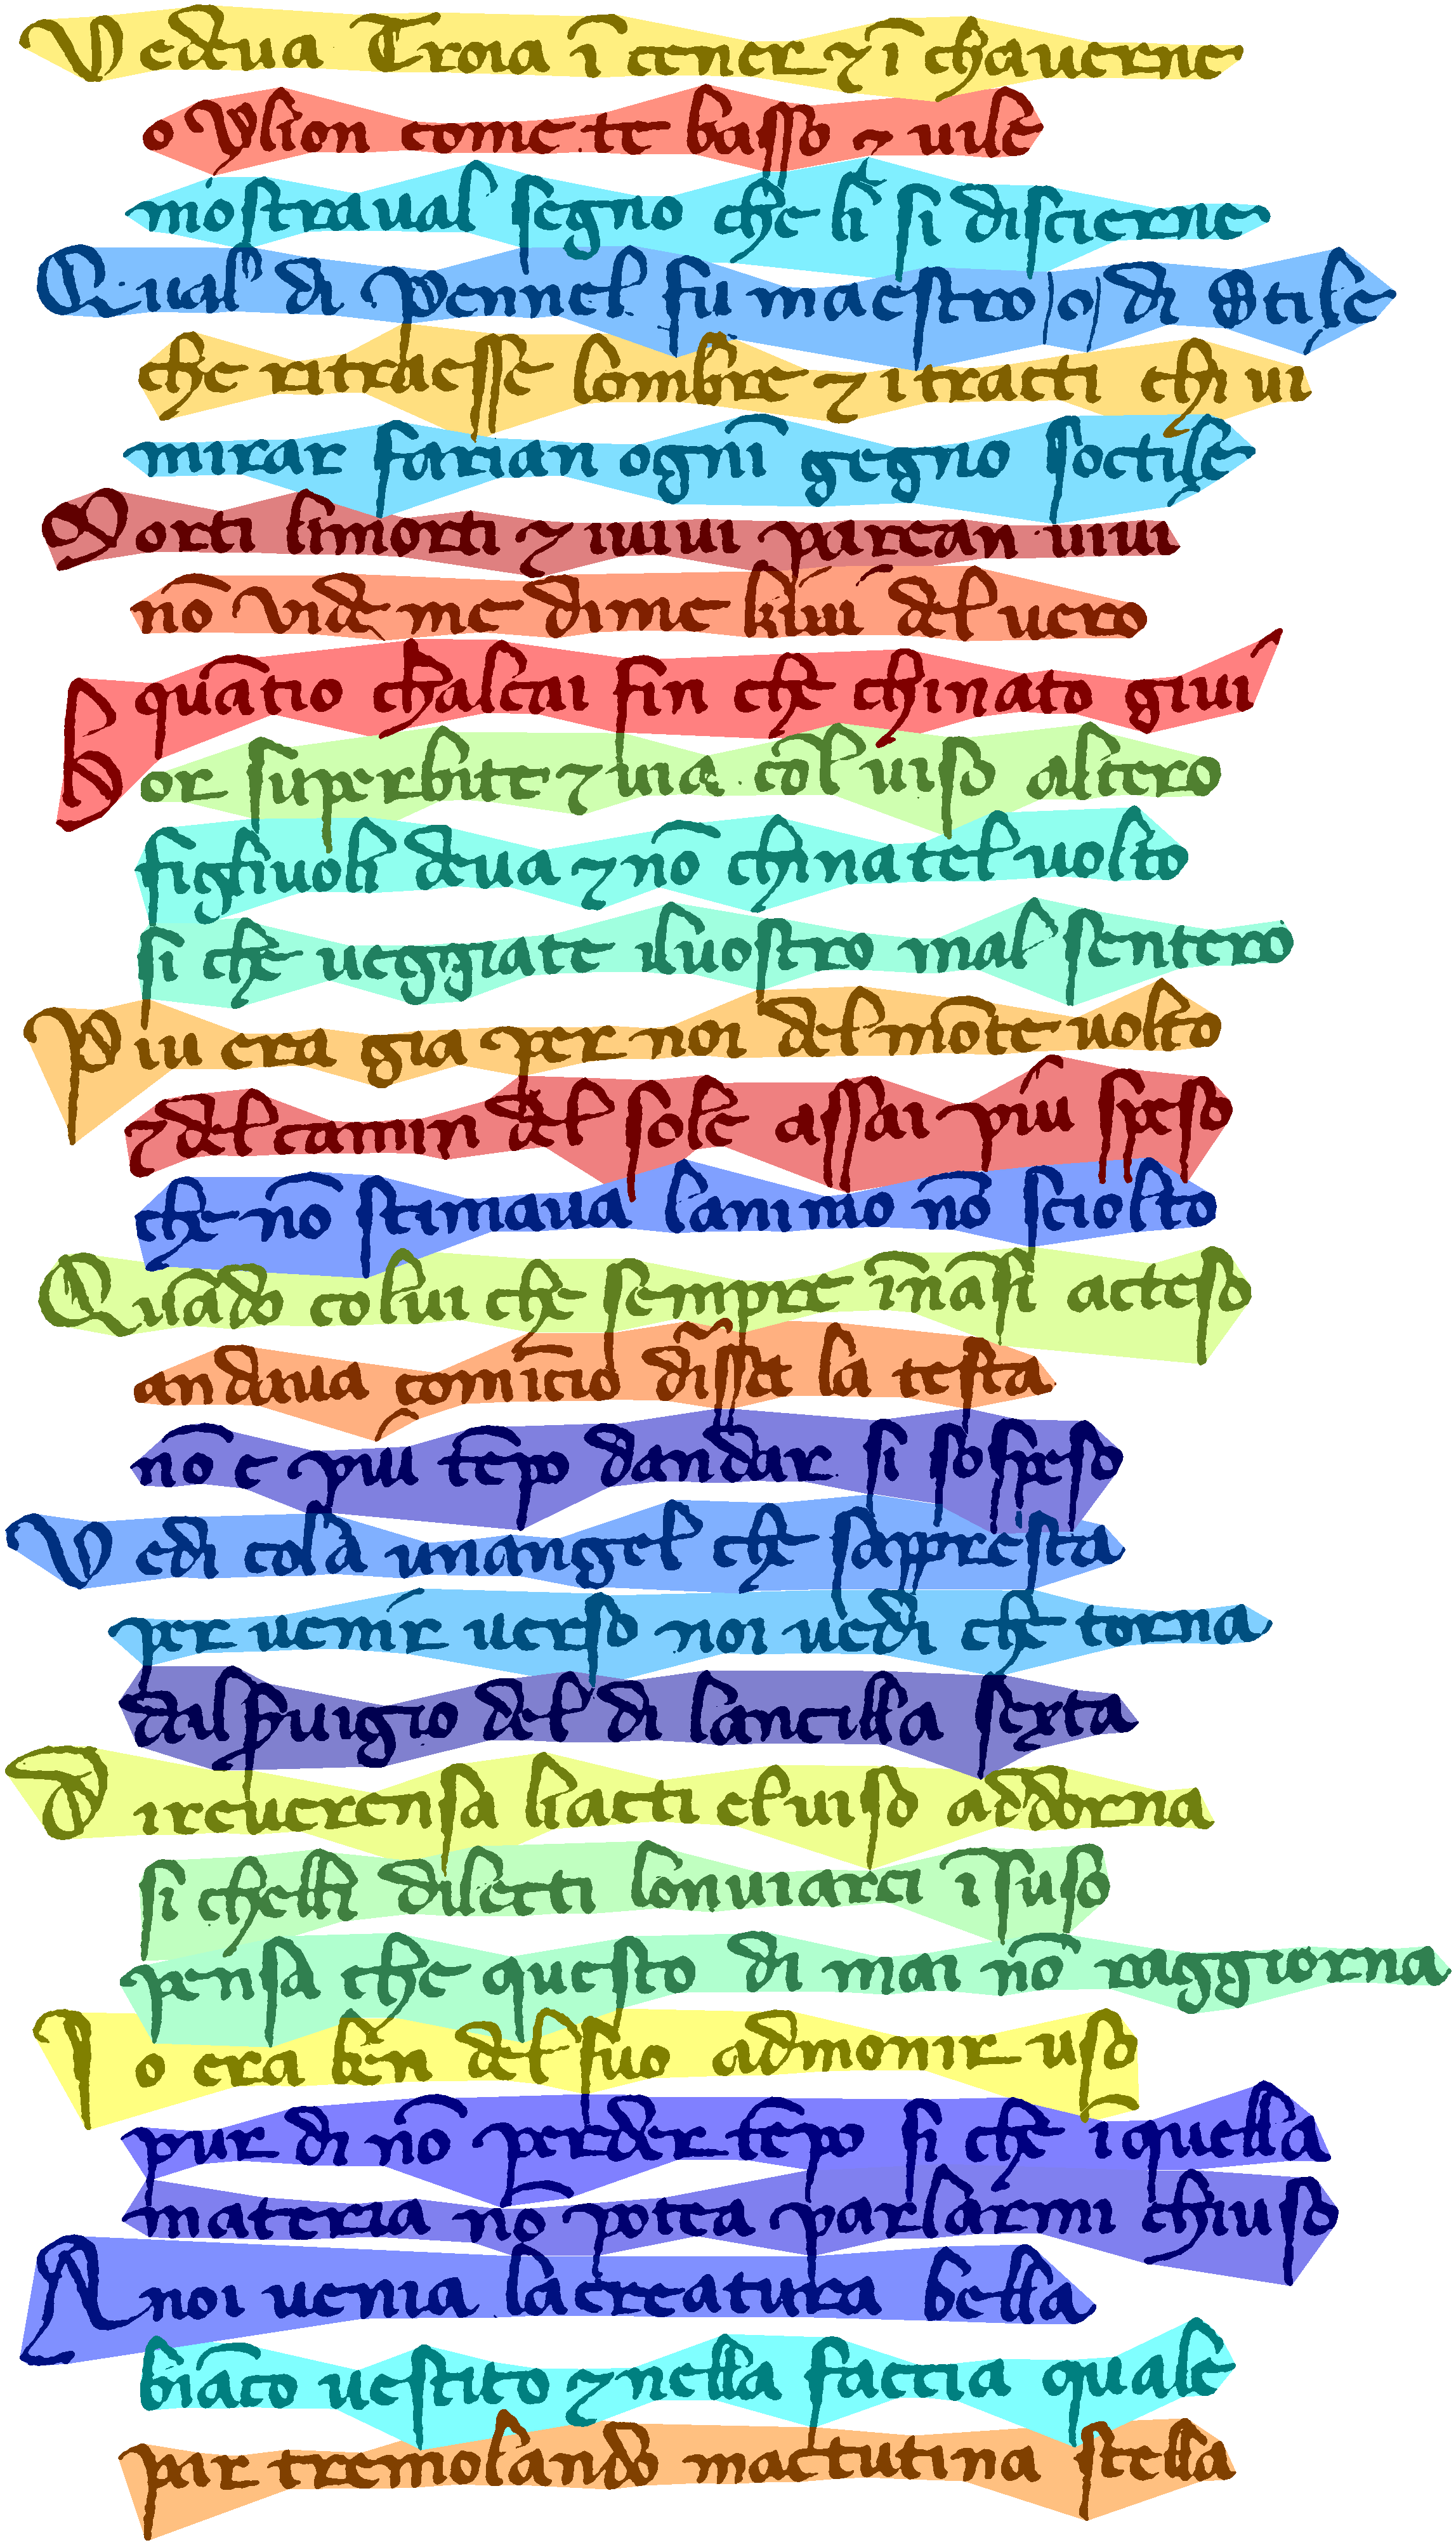 Vedeua Troia ī cener ⁊ ī chauerne
o ylion come te basso ⁊ uile
mostraual segno che li si discierne
Qual di pennel fu maestro |o| di stile
che ritraesse lombre ⁊ i tracti chi ui
mirar farian ogni gegno soctile
Morti li morti ⁊ i uiui parean uiui
nō vide me di me ki uiu del uero
quātio chalcai fin che chinato giui
Hor superbite ⁊ uia col uiso altero
figliuoli deua ⁊ nō chinatel uolto
si che ueggiate il uostro mal sentero
Piu era gia per noi del mōte uolto
⁊ del camin del sole assai piu speso
che nō stimaua lanimo nō sciolto
Quādo colui che sempre īnāsi acteso
andaua comīcio diss la testa
nō e piu tēpo dandar si sospeso
Vedi cola unangel che sappresta
per uenir uerso noi uedi che torna
dal seruigio del di lancilla sexta
Di reuerensa li acti el uiso addorna
si chelli dilecti lonuiarci ī suso
pensa che questo di mai nō raggiorna
Io era ben del suo admonir uso
pur di nō perder tēpo si che ī quella
materia nō potea parlarmi chiuso
A noi uenia la creatura bella
biāco uestito ⁊ nella faccia quale
par tremolando mactutina stella